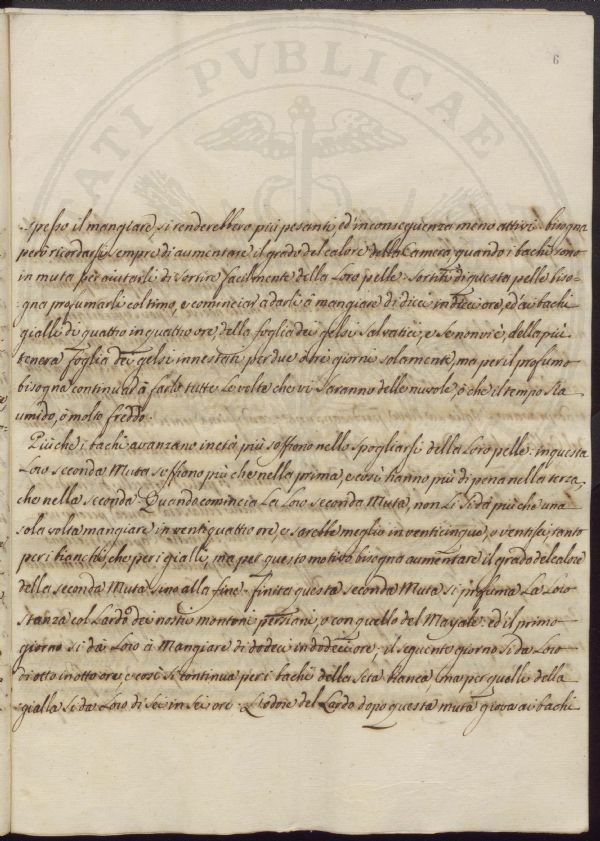 6
spesso il mangiare, si renderebbero più pesanti, ed in conseguenza meno attivi. bisogna
però ricordarsi sempre di aumentare il grado del calore della Camera quando i bachi sono
in muta per aiutarli di sortire facilmente della Loro pelle. Sortiti di questa pelle biso-
gna profumarli col timo, e cominciar à darli à mangiare di dieci in dieci ore, ed ai bachi
gialli di quattro in quattro ore, della foglia dei gelsi Salvatici, e se non vi è, della più
tenera foglia dei gelsi innestati per due o tre giorni solamente, ma per il profumo
bisogna continuar à farlo tutte le volte che vi saranno delle nuvole, ò che il tempo sia
umido, ò molto freddo.
Più che i bachi avanzano in età più soffrono nello spogliarsi della Loro pelle: in questa
Loro seconda Muta soffrono più che nella prima, e così hanno più di pena nella terza,
che nella seconda. Quando comincia La Loro seconda Muta, non Li si dà più che una
sola volta mangiare in ventiquattro ore, e sarebbe meglio in venticinque, o ventisei, tanto
per i bianchi, che per i gialli, ma per questo motivo bisogna aumentare il grado del calore
della seconda Muta sino alla fine. finita questa seconda Muta si profuma La Loro
Stanza col Lardo dei nostri montoni persiani, o con quello del Mayale: ed il primo
giorno si dà Loro à Mangiare di dodeci in dodeci ore, il seguente giorno si da Loro
di otto in otto ore, e così si continua per i bachi della Seta bianca, ma per quelli della
gialla si da Loro di Sei in Sei ore. L'odore del Lardo dopo questa muta giova ai bachi
ATI PVBLICAE